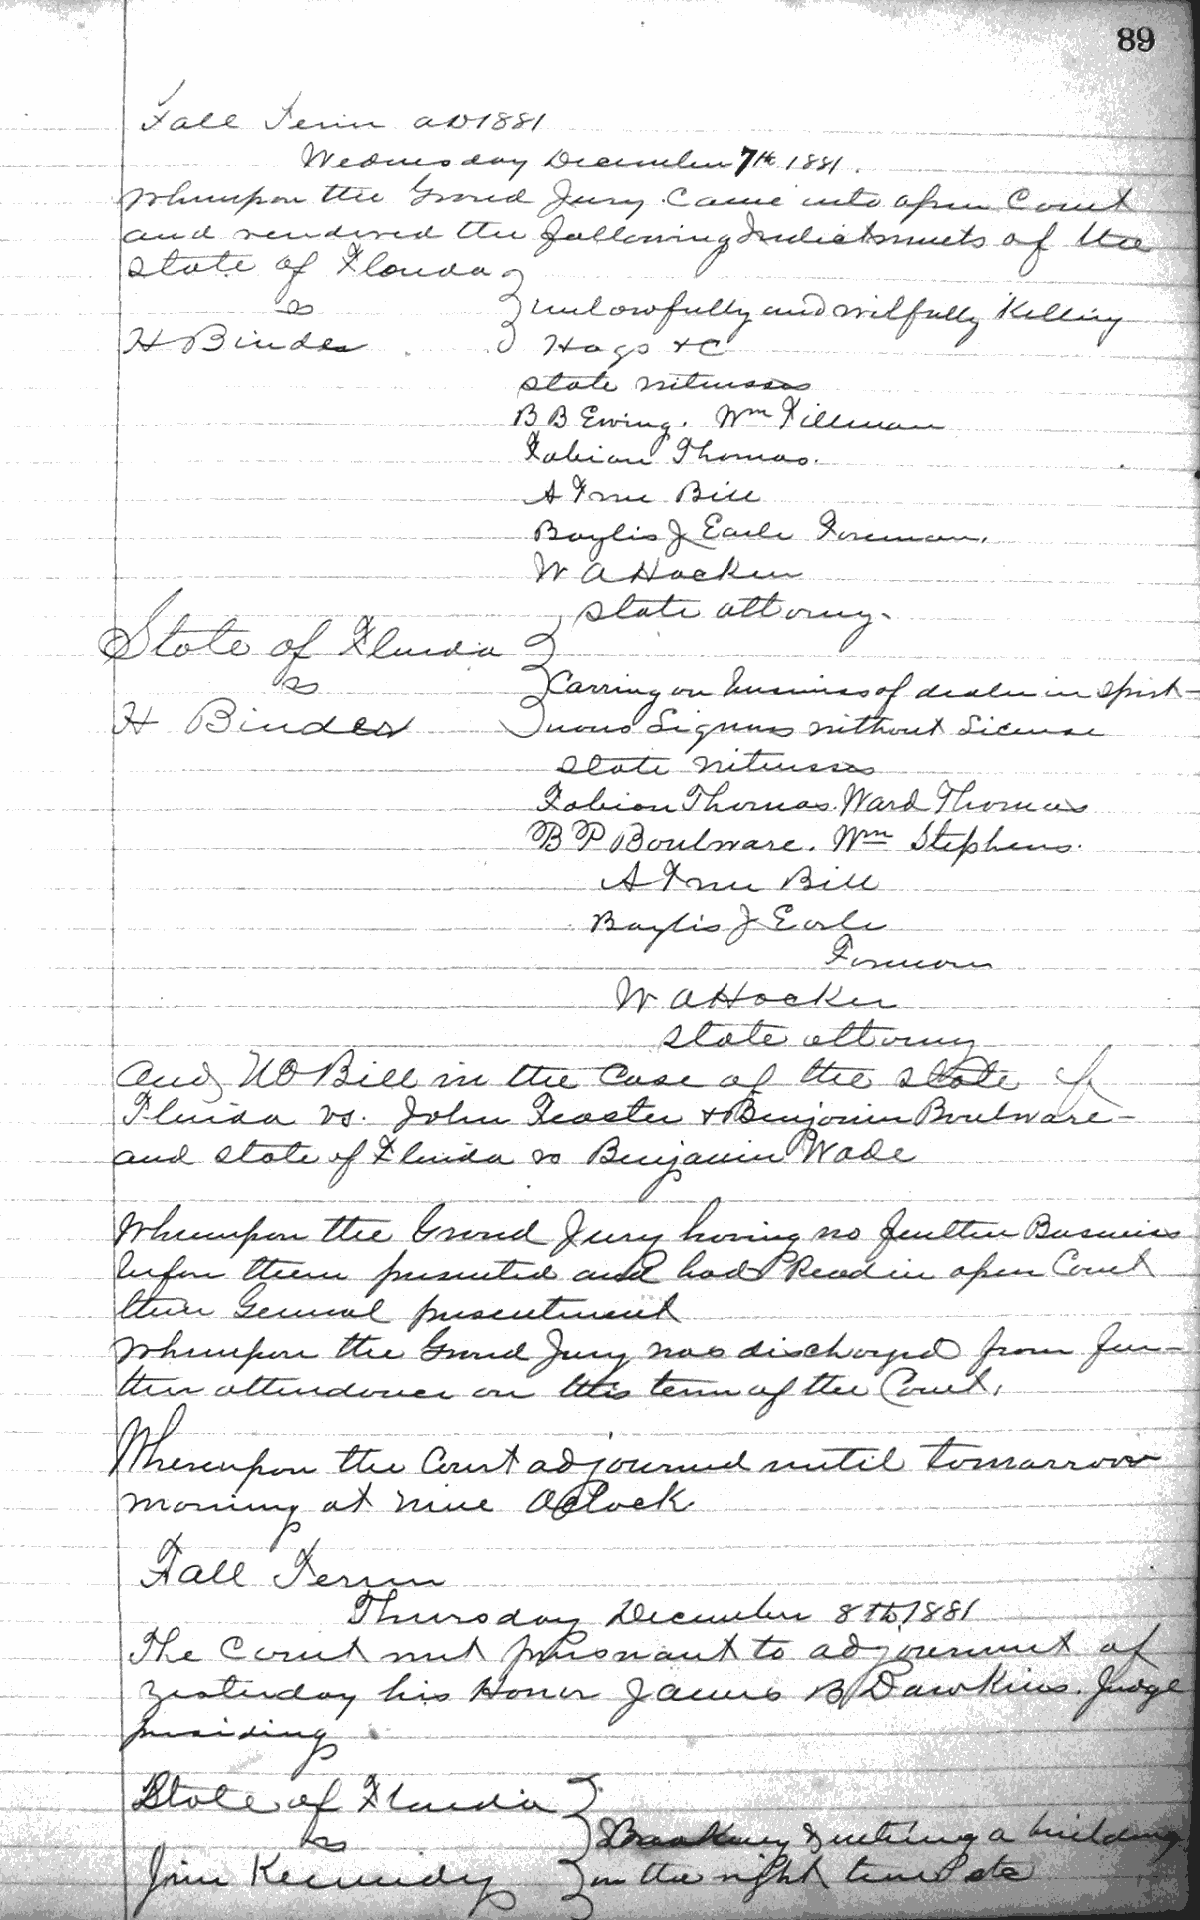 89
Fall Term AD 1881
Wednesday December 7th 1881.
Whereupon the Grand Jury Came into open Court
and rendered the following Indictments of the
State of Florida
vs
unlawfully and wilfully Killing
H Binder
Hogs &C
State Witnesses
B B Ewing. Wm Tillman
Fabian Thomas.
A True Bill
Baylis J Earle Foreman.
W A Hocker
State attorny.
State of Florida
vs
Carring on business of dealer in Spirit-
H Binder
uous Liquors without License
State Witnesses
Fabian Thomas. Ward Thomas
B P Boulware. Wm Stephens.
A True Bill
Baylis J Earle
Forman
W A Hocker
State attorny
and NO Bill in the Case of the State of
Florida vs. John Feaster & Benjamin Boulware-
and State of Florida vs Benjamin Wade
Whereupon the Grand Jury having no further Business
before them presented and had Read in open Court
their General presentment
Whereupon the Grand Jury was discharged from fur-
ther attendance on this term of the Court.
Whereupon the Court adjourned until tomarrow
morning at nine Oclock
Fall Term
Thursday December 8th 1881
The Court met pursuant to adjournment of
Yesterday his Honor James B Dawkins. Judge
presiding
State of Florida
vs
Breaking & entering a building
Jim Kennedy
in the night time etc